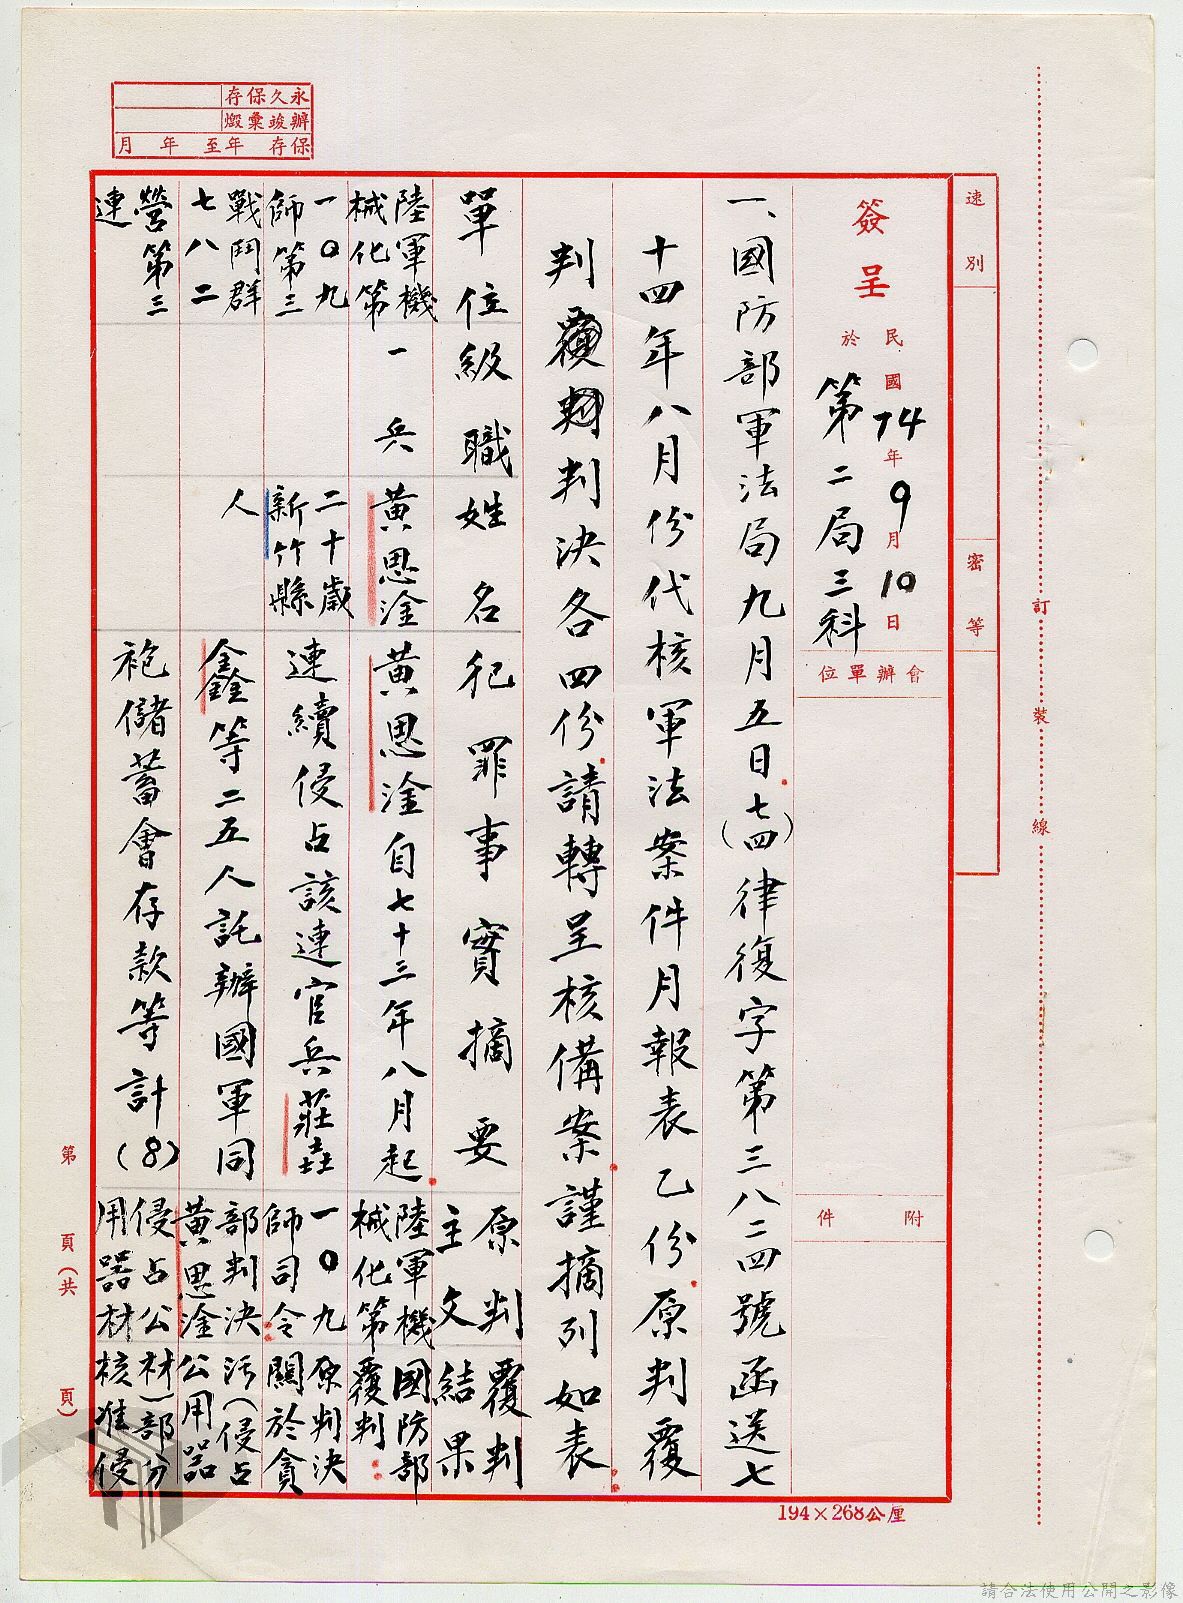 永久保存
辦竣彙燬
保存　年至　年　月
速別
密等
簽呈
民國74年9月10日
於第二局三科
會辦單位
附件
一、國防部軍法局九月五日(七四)律復字第三八二四號函送七
十四年八月份代核軍法案件月報表乙份原判覆
判判決各四份請轉呈核備案謹摘列如表
單位
級職
姓名
犯罪事實摘要
原判主文
覆判結果
陸軍機
械化第
一〇九
師第三
戰鬥群
七八二
營第三
連
一兵
黃恩淦
二十歲
新竹縣
人
黃恩淦自七十三年八月起
連續侵占該連官兵莊垚
鑫等二五人託辦國軍同
袍儲蓄會存款等計(8)
陸軍機
械化第
一〇九
師司令
部判決
黃恩淦
侵占公
用器材
國防部
覆判：
原判決
關於貪
污(侵占
公用器
材)部分
核准侵
訂
裝
線
第　頁(共　頁)
194×268公厘
請合法使用公開之影像